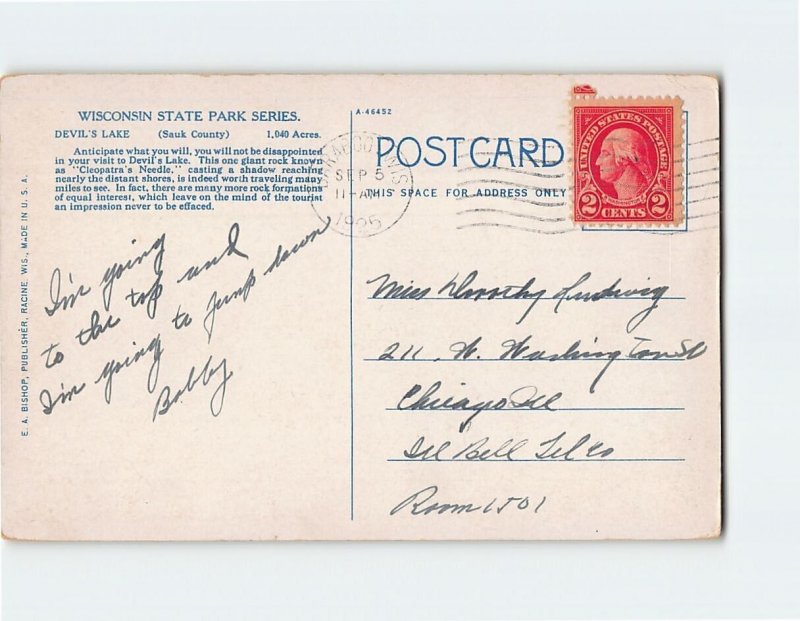 WISCONSIN STATE PARK SERIES.
DEVIL'S LAKE (Sauk County) 1,040 Acres.
Anticipate what you will, you will not be disappointed
in your visit to Devil's Lake. This one giant rock known
as "Cleopatra's Needle," casting a shadow reaching
nearly the distant shores, is indeed worth traveling many
miles to see. In fact, there are many more rock formations
of equal interest, which leave on the mind of the tourist
an impression never to be effaced.
E. A. BISHOP, PUBLISHER, RACINE, WIS., MADE IN U. S. A.
I'm going
to the top and
I'm going to jump down
Bobby
A-46452
POSTCARD
THIS SPACE FOR ADDRESS ONLY
BARABOO, WIS
SEP 5
11-AM
1925
UNITED STATES POSTAGE
2 CENTS 2
Miss Dorothy Ludwig
211. W. Washington St
Chicago Ill
Ill Bell Tel Co
Room 1501